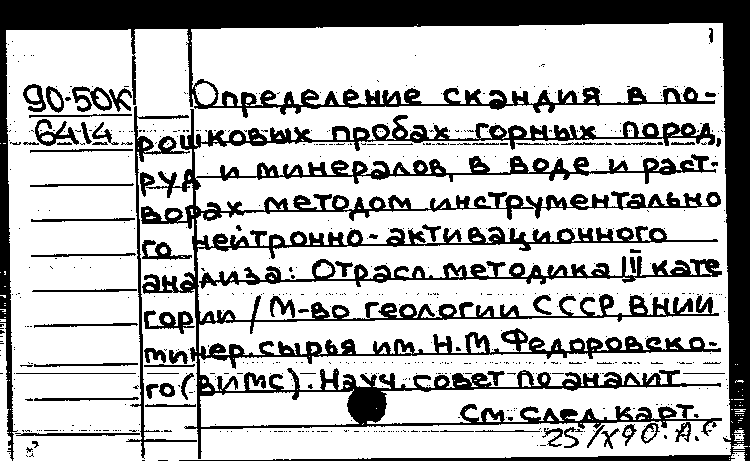 90-50К
6414
Определение скандия в по-
рошковых пробах горных пород,
руд и минералов, в воде и раст-
ворах методом инструментально
го нейтронно-активационного
анализа: Отрасл. методика III кате
гории / М-во геологии СССР, ВНИИ
минер. сырья им. Н.М. Федоровско-
го (ВИМС). Науч. совет по аналит.
См. след. карт.
25/X90. А.С